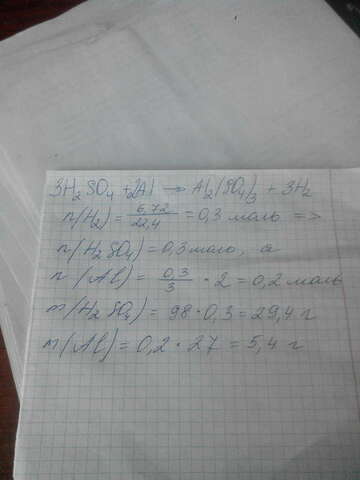 3H₂SO₄ + 2Al → Al₂(SO₄)₃ + 3H₂
n(H₂) = 6,72/22,4 = 0,3 моль =>
n(H₂SO₄) = 0,3 моль, а
n(Al) = 0,3/3 · 2 = 0,2 моль
m(H₂SO₄) = 98 · 0,3 = 29,4 г
m(Al) = 0,2 · 27 = 5,4 г